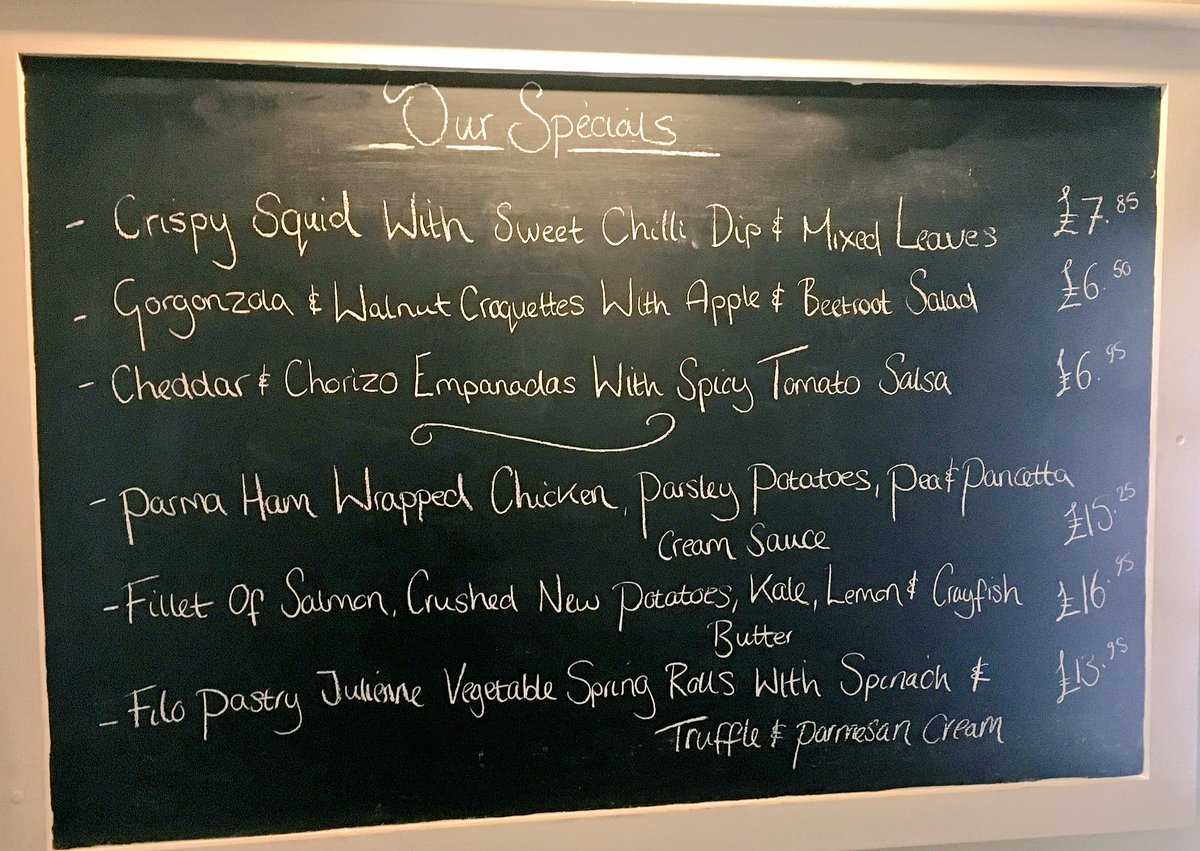 Our Specials
- Crispy Squid With Sweet Chilli Dip & Mixed Leaves £7.85
- Gorgonzola & Walnut Croquettes With Apple & Beetroot Salad £6.50
- Cheddar & Chorizo Empanadas With Spicy Tomato Salsa £6.95
- Parma Ham Wrapped Chicken, Parsley Potatoes, Pea & Pancetta
Cream Sauce £15.25
- Fillet Of Salmon, Crushed New Potatoes, Kale, Lemon & Crayfish £16.95
Butter
- Filo Pastry Julienne Vegetable Spring Rolls With Spinach & £13.95
Truffle & Parmesan Cream